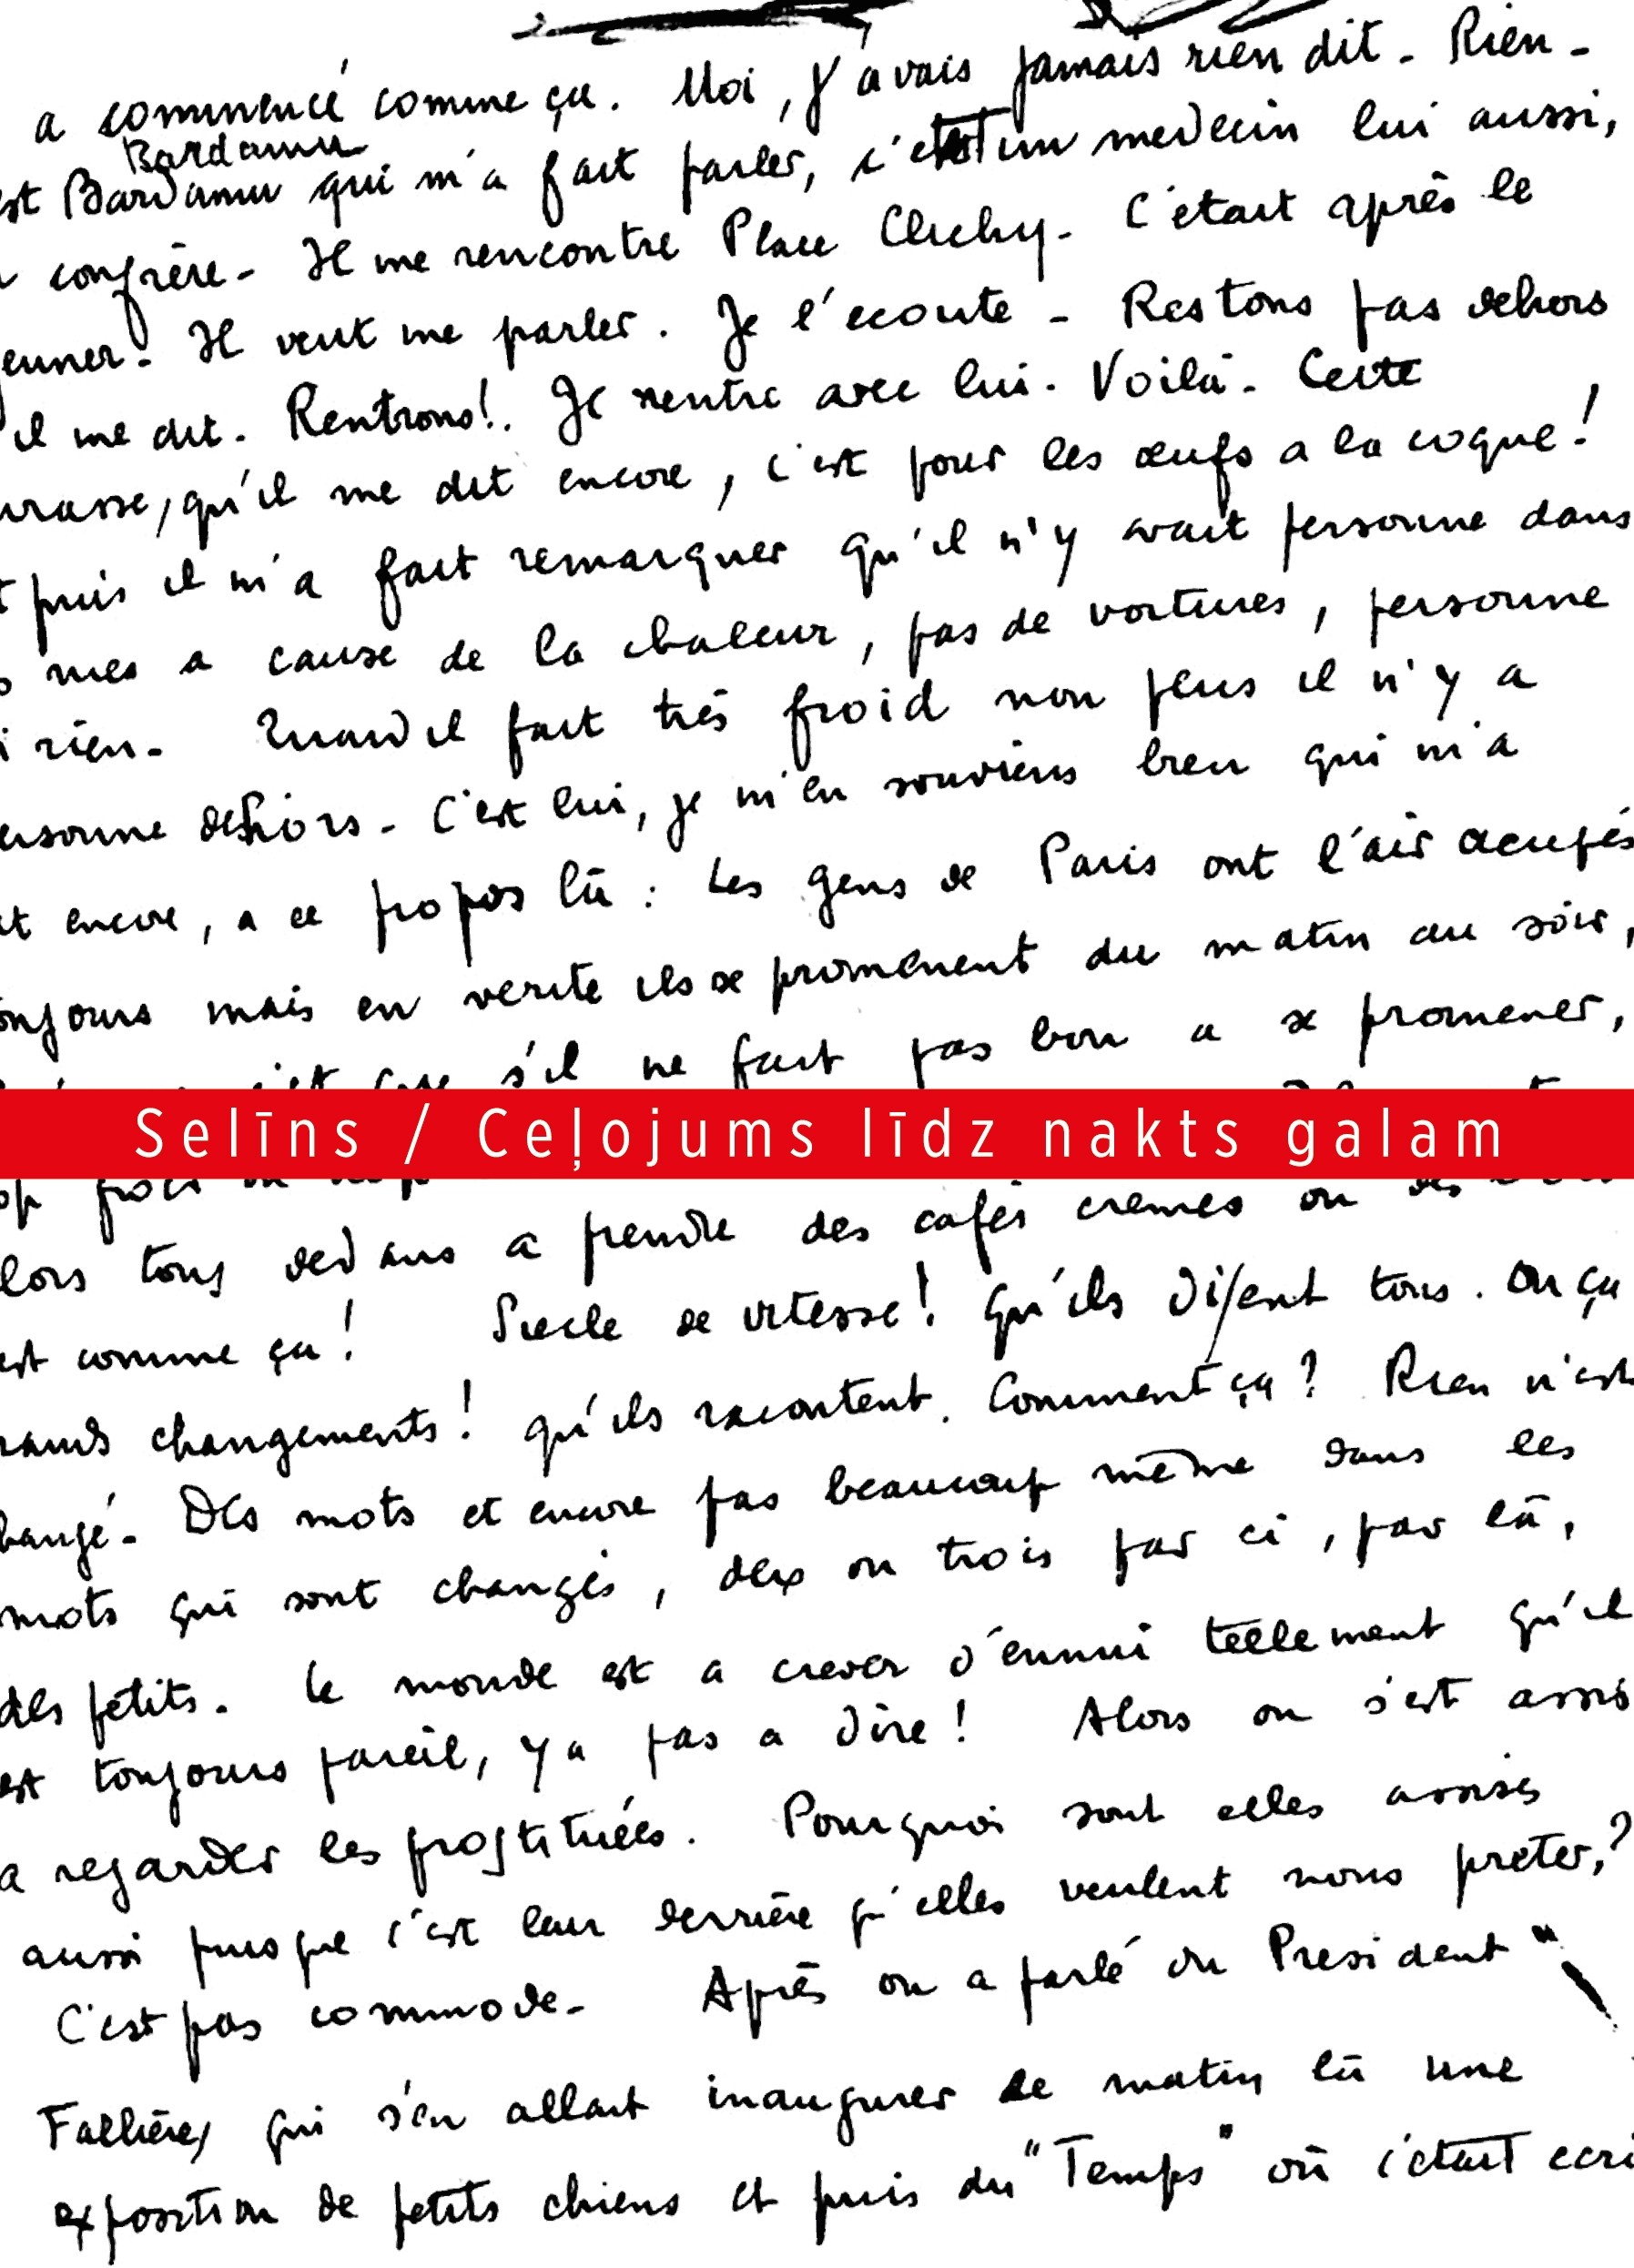 a commencé comme ça. Moi, j'avais jamais rien dit - Rien -
Bardamu
st Bardamu qui m'a fait parler, c'etait un medecin lui aussi,
confrère - Il me rencontre Place Clichy - C'était après le
euner - Il veut me parler. Je l'ecoute - Restons pas dehors
il me dit - Rentrons!. Je rentre avec lui. Voilà - Cette
rrasse, qu'il me dit encore, c'est pour les œufs a la coque!
t puis il m'a fait remarquer qu'il n'y avait personne dans
s rues a cause de la chaleur, pas de voitures, personne
i rien - Quand il fait très froid non plus il n'y a
ersonne dehors - C'est lui, je m'en souviens bien qui m'a
it encore, a ce propos là : Les gens de Paris ont l'air occupés
oujours mais en verite ils se promènent du matin au soir,
s'il ne fait pas bon a se promener,
Selīns / Ceļojums līdz nakts galam
op froid
lors tous dedans a prendre des cafés cremes ou des
est comme ça! Siecle de vitesse! qu'ils disent tous. Où ça
rands changements! qu'ils racontent. Comment ça? Rien n'est
hangé - Des mots et encore pas beaucoup même dans les
mots qui sont changés, deux ou trois par ci, par là,
des petits - Le monde est a crever d'ennui tellement qu'il
est toujours pareil, y a pas a dire! Alors on s'est assis
a regarder les prostituées. Pourquoi sont elles assises
aussi puisque c'est leur derrière qu'elles veulent nous preter,?
C'est pas commode - Après on a parlé du President "
Fallières qui s'en allait inaugurer ce matin là une
exposition de petits chiens et puis du "Temps" où c'était ecri